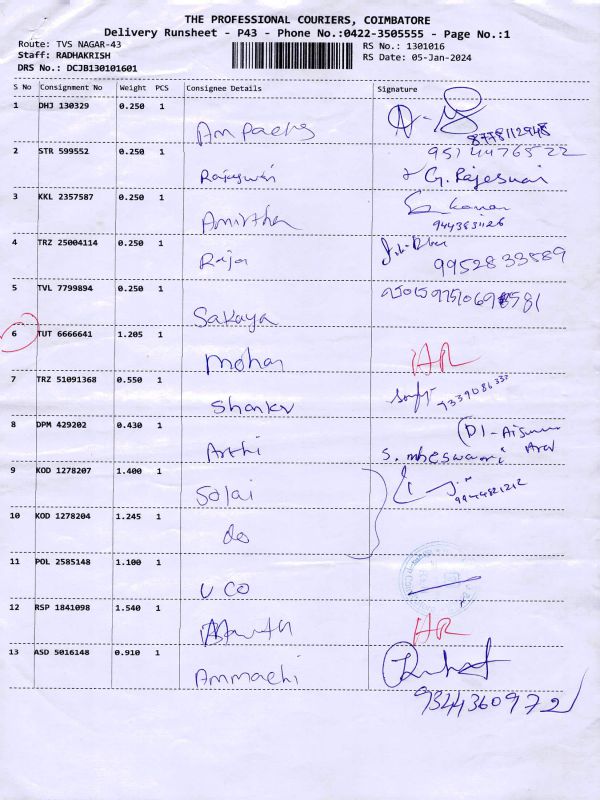 THE PROFESSIONAL COURIERS, COIMBATORE
Delivery Runsheet - P43 - Phone No.:0422-3505555 - Page No.:1
Route: TVS NAGAR-43 RS No.: 1301016
Staff: RADHAKRISH RS Date: 05-Jan-2024
DRS No.: DCJB130101601
S No Consignment No Weight PCS Consignee Details Signature
1 DHJ 130329 0.250 1
Am Packs 8778112948
2 STR 599552 0.250 1 9514476522
Rajeswari G. Rajeswari
3 KKL 2357587 0.250 1 kannan
Amirtha
4 TRZ 25004114 0.250 1
Raja 9952833589
5 TVL 7799894 0.250 1
Sakaya
6 TUT 6666641 1.205 1
Mohan HR
7 TRZ 51091368 0.550 1
Shanker
8 DPM 429202 0.430 1
Arthi
9 KOD 1278207 1.400 1
Solai
10 KOD 1278204 1.245 1
do
11 POL 2585148 1.100 1
UCO
12 RSP 1841098 1.540 1
HR
13 ASD 5016148 0.910 1
Ammachi
9344360972